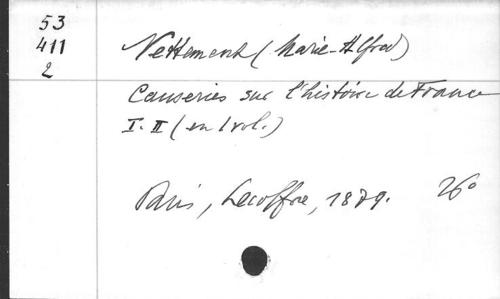 53
411
2
Nettement (Marie-Alfred)
Causeries sur l'histoire de France
I. II (en 1 vol.)
Paris, Lecoffre, 1879. 26°